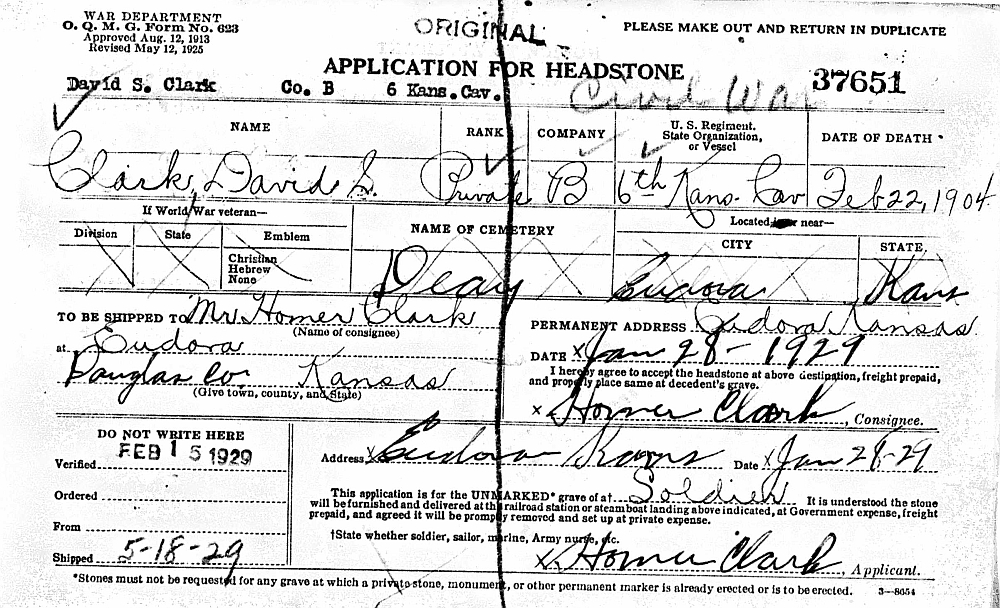 WAR DEPARTMENT
O. Q. M. G. Form No. 623
Approved Aug. 12, 1913
Revised May 12, 1925
ORIGINAL
PLEASE MAKE OUT AND RETURN IN DUPLICATE
APPLICATION FOR HEADSTONE
37651
David S. Clark Co. B 6 Kans.Cav.
Civil War
NAME RANK COMPANY U. S. Regiment, State Organization, or Vessel DATE OF DEATH
Clark, David S. Private B 6th Kans. Cav Feb 22, 1904
If World War veteran—
NAME OF CEMETERY
Located in or near—
Division State Emblem
CITY STATE
Christian
Hebrew
None
Deay Eudora Kans
TO BE SHIPPED TO Mr Homer Clark
(Name of consignee)
at Eudora
Douglas Co. Kansas
(Give town, county, and State)
PERMANENT ADDRESS Eudora Kansas
DATE x Jan 28- 1929
I hereby agree to accept the headstone at above destination, freight prepaid,
and properly place same at decedent's grave.
x Homer Clark, Consignee.
DO NOT WRITE HERE
FEB 15 1929
Verified
Ordered
From
Shipped 5-18-29
Address x Eudora Kans Date x Jan 28-29
This application is for the UNMARKED* grave of a† Soldier It is understood the stone
will be furnished and delivered at the railroad station or steamboat landing above indicated, at Government expense, freight
prepaid, and agreed it will be promptly removed and set up at private expense.
†State whether soldier, sailor, marine, Army nurse, etc.
x Homer Clark, Applicant.
*Stones must not be requested for any grave at which a private stone, monument, or other permanent marker is already erected or is to be erected. 3—8654